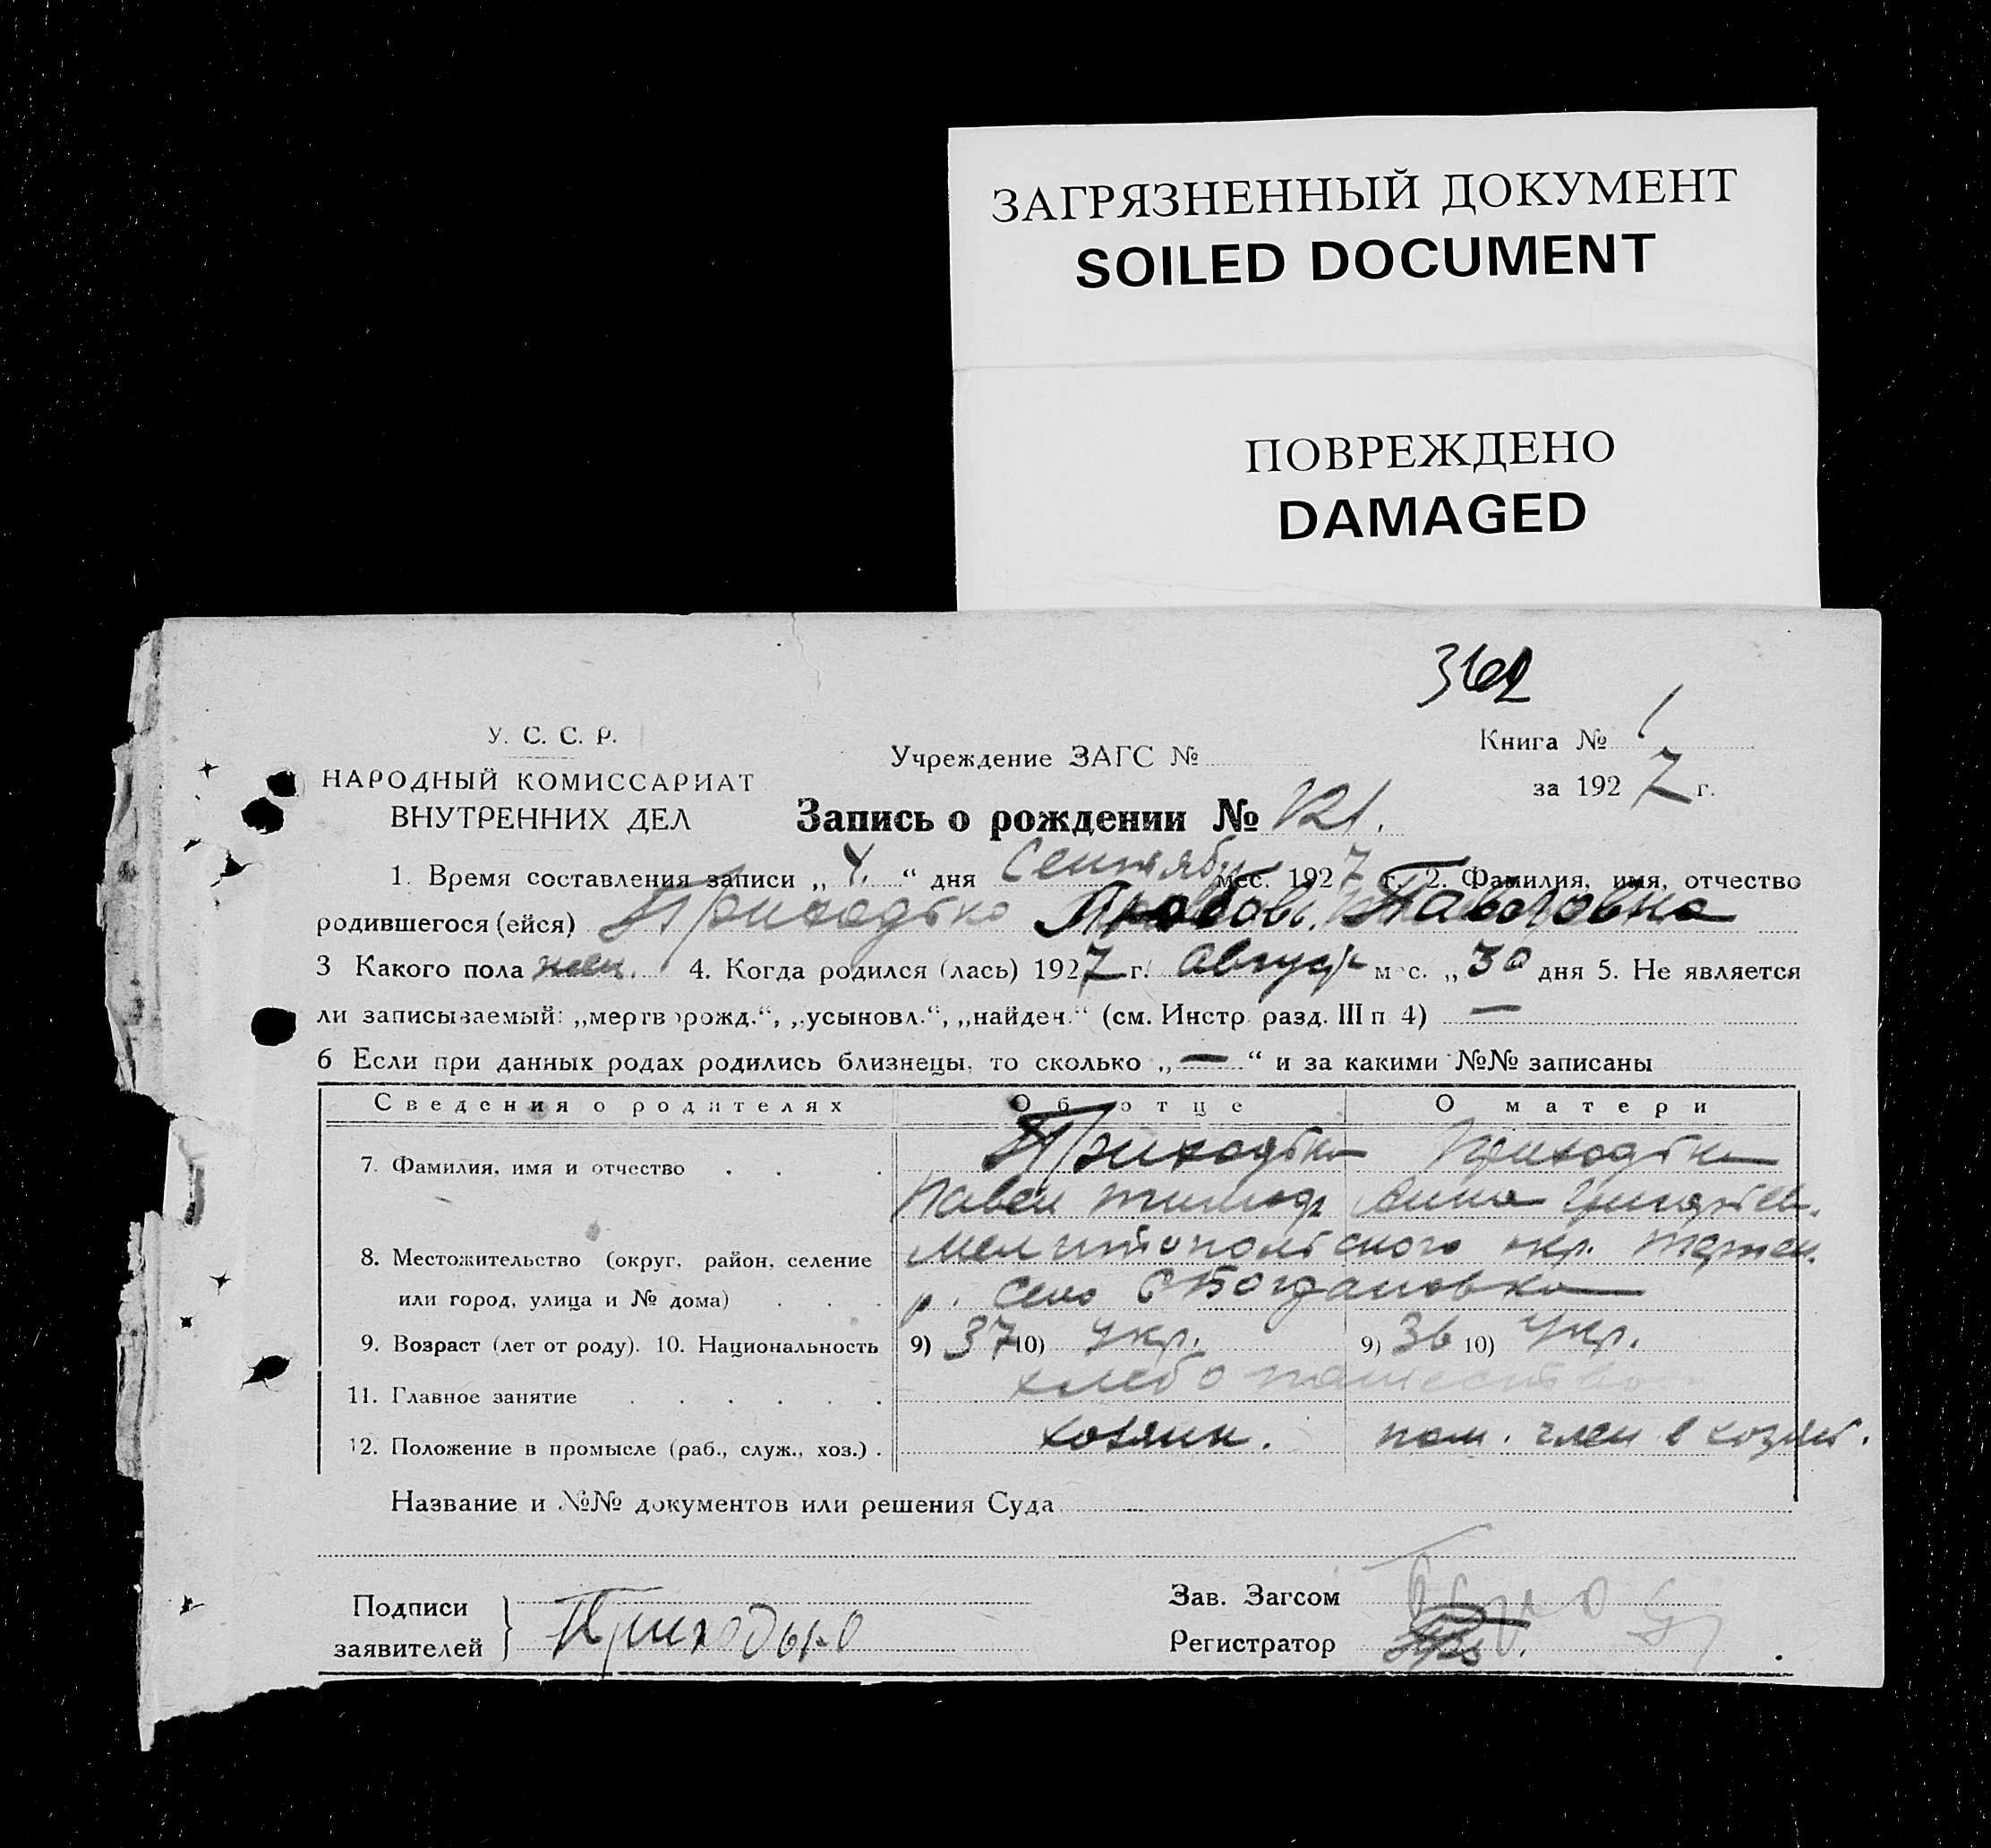 ЗАГРЯЗНЕННЫЙ ДОКУМЕНТ
SOILED DOCUMENT
ПОВРЕЖДЕНО
DAMAGED
362
У. С. С. Р.
НАРОДНЫЙ КОМИССАРИАТ
ВНУТРЕННИХ ДЕЛ
Учреждение ЗАГС №
Книга № 1
за 1927 г.
Запись о рождении № 121.
1. Время составления записи „ 4. “ дня Сентября мес. 1927 г. 2. Фамилия, имя, отчество
родившегося (ейся) Приходько Любовь Павловна
3 Какого пола жен. 4. Когда родился (лась) 1927 г. август мес. „30 дня 5. Не является
ли записываемый: „мертворожд.“, „усыновл.“, „найден.“ (см. Инстр. разд. III п 4) —
6 Если при данных родах родились близнецы, то сколько „—“ и за какими №№ записаны
Сведения о родителях Об отце О матери
7. Фамилия, имя и отчество Приходько Приходько
Павел Тимоф Анна Григорьев.
8. Местожительство (округ, район, селение Мелитопольского окр.
или город, улица и № дома) р. село Богдановка
9. Возраст (лет от роду). 10. Национальность 9) 37 10) Укр. 9) 36 10) Укр.
11. Главное занятие хлебопашество
12. Положение в промысле (раб., служ., хоз.) хозяин. пом. член в хозяй.
Название и №№ документов или решения Суда
Подписи
заявителей Приходько
Зав. Загсом
Регистратор